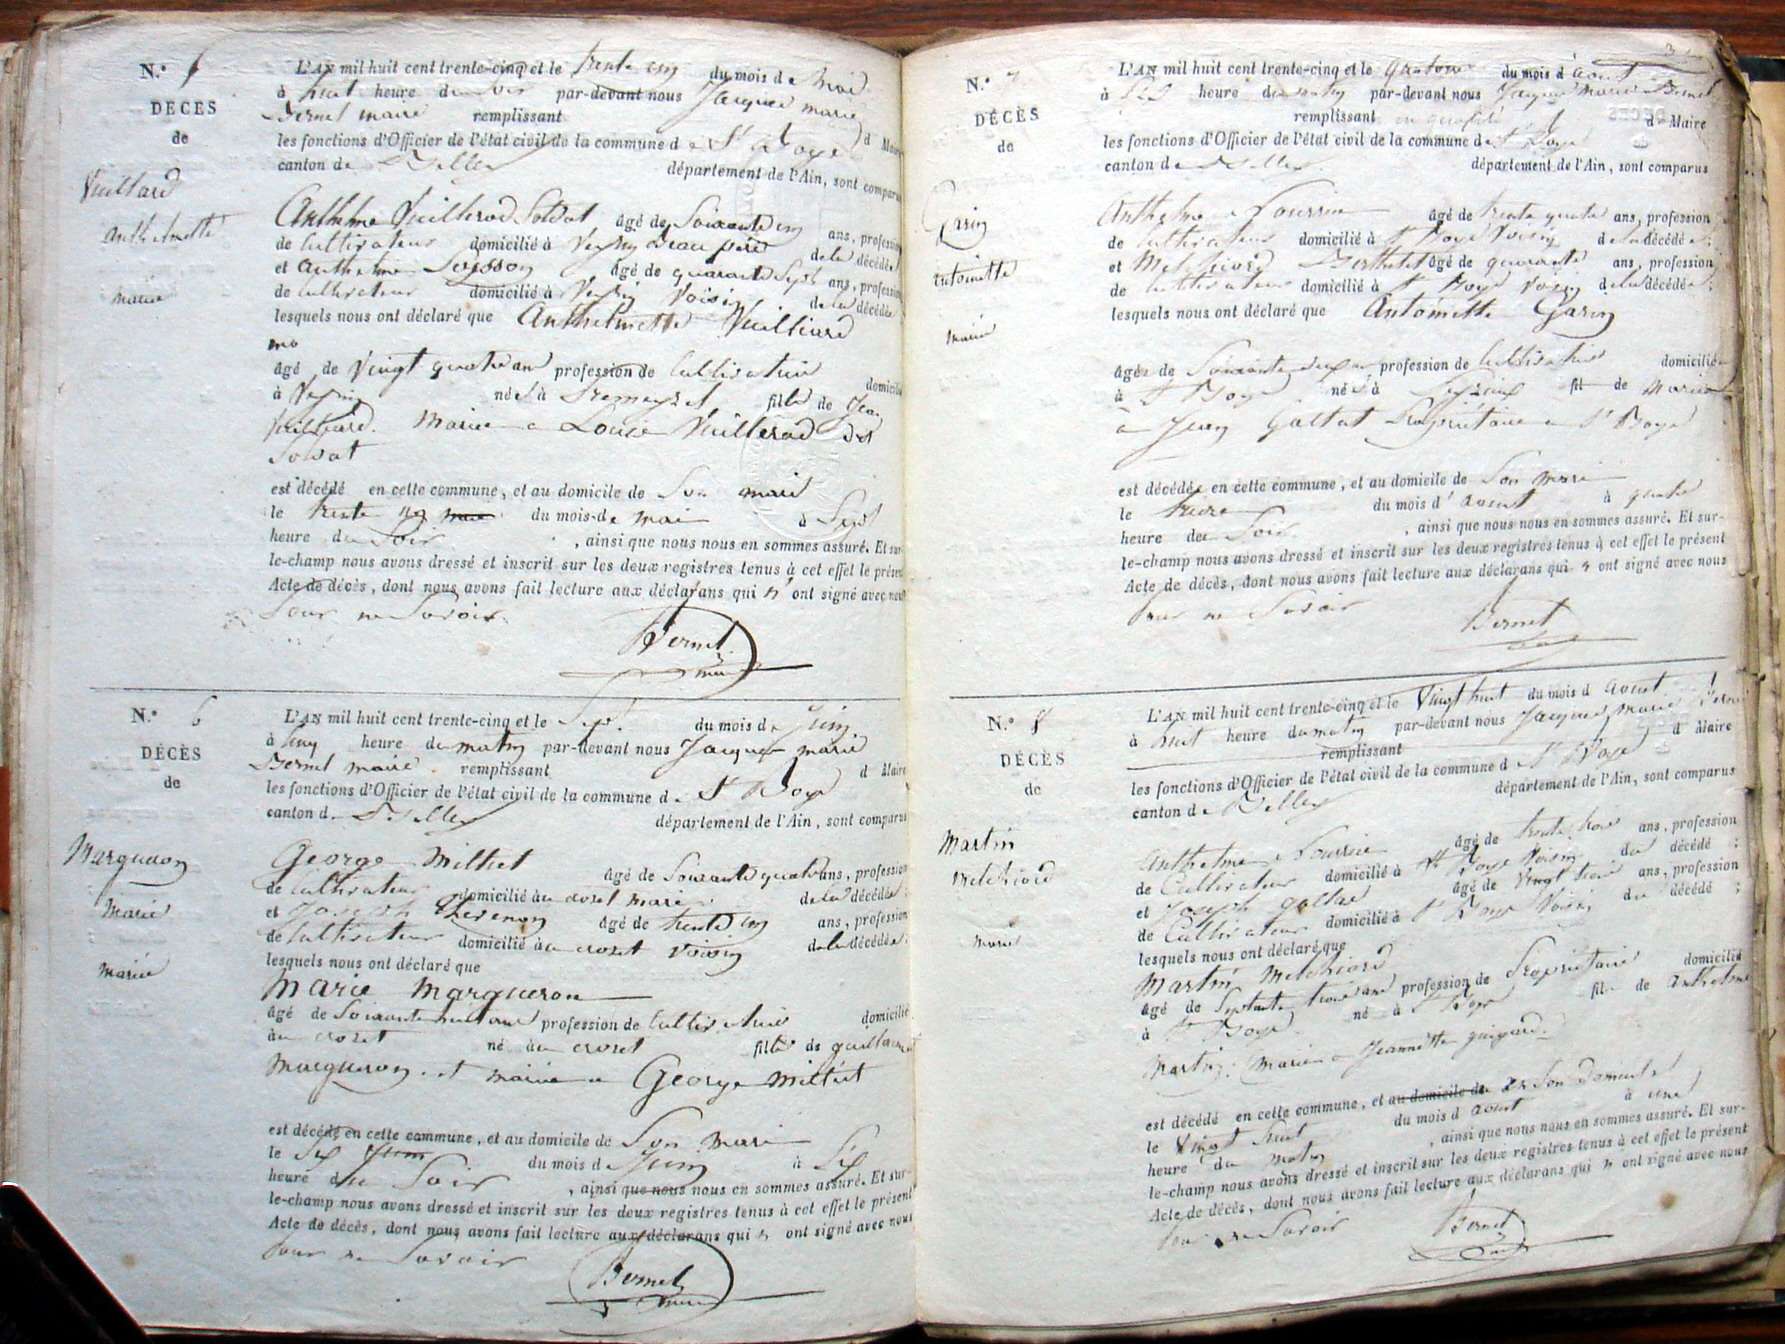 N.°
DÉCÈS
de
Vuillard
anthelmette
mariée
L'AN mil huit cent trente-cinq et le trente un du mois de Mai
à huit heure du soir par-devant nous Jacques marie
Bernet maire remplissant d Maire
les fonctions d'Officier de l'état civil de la commune de St Boys
canton de Belley département de l'Ain, sont comparus
Anthelme Vuillerod Soldat âgé de Soixante ans, profession
de Cultivateur domicilié à Beau père de la décédée
et anthelme âgé de quarante Sept ans, profession
de Cultivateur domicilié à Voisin de la décédée
lesquels nous ont déclaré que Anthelmette Vuilliard
âgé de Vingt quatre ans profession de Cultivatrice domicilié
à née à fille de Jean
Vuilliard Mariée a Louis Vuillerod dit
Soldat
est décédé en cette commune, et au domicile de Son mari
le trente un du mois de mai à Sept
heure du Soir, ainsi que nous nous en sommes assuré. Et sur-
le-champ nous avons dressé et inscrit sur les deux registres tenus à cet effet le présent
Acte de décès, dont nous avons fait lecture aux déclarans qui n'ont signé avec nous
pour ne Savoir.
Bernet
maire
N.° 6
DÉCÈS
de
Margueron
Marie
mariée
L'AN mil huit cent trente-cinq et le Sept du mois de Juin
à cinq heure du matin par-devant nous Jacques marie
Bernet maire remplissant d Maire
les fonctions d'Officier de l'état civil de la commune de St Boys
canton de Belley département de l'Ain, sont comparus
George Milliet âgé de Soixante quatre ans, profession
de Cultivateur domicilié au croset mari de la décédée
et Joseph Thevenon âgé de trente cinq ans, profession
de Cultivateur domicilié au croset voisin de la décédée
lesquels nous ont déclaré que
Marie Margueron
âgé de Soixante huit ans profession de Cultivatrice domicilié
au croset né au croset fille de guillaume
Margueron et mariée a George Milliet
est décédé en cette commune, et au domicile de Son Mari
le Six Juin du mois de Juin à Six
heure du Soir, ainsi que nous nous en sommes assuré. Et sur-
le-champ nous avons dressé et inscrit sur les deux registres tenus à cet effet le présent
Acte de décès, dont nous avons fait lecture aux déclarans qui n'ont signé avec nous
pour ne Savoir
Bernet
maire
N.° 7
DÉCÈS
de
Garin
antoinette
mariée
L'AN mil huit cent trente-cinq et le quatorze du mois d'aout
à heure du matin par-devant nous Jacques Marie Bernet
remplissant en qualité de Maire
les fonctions d'Officier de l'état civil de la commune de St Boys
canton de Belley département de l'Ain, sont comparus
Anthelme Poursin âgé de trente quatre ans, profession
de Cultivateur domicilié à St Boys Voisin de la décédée;
et Melchiord Berthelet âgé de quarante ans, profession
de Cultivateur domicilié à St Boys Voisin de la décédée;
lesquels nous ont déclaré que Antoinette Garin
âgée de Soixante deux profession de Cultivatrice domicilié
à St Boys née à fil de Mariée
à Jean Galtat Propriétaire a St Boys
est décédée en cette commune, et au domicile de Son Mari
le treize du mois d'aout à quatre
heure du Soir, ainsi que nous nous en sommes assuré. Et sur-
le-champ nous avons dressé et inscrit sur les deux registres tenus à cet effet le présent
Acte de décès, dont nous avons fait lecture aux déclarans qui n'ont signé avec nous
pour ne Savoir
Bernet
N.° 8
DÉCÈS
de
Martin
Melchiord
marié
L'AN mil huit cent trente-cinq et le Vingt huit du mois d aout
à huit heure du matin par-devant nous Jacques Marie Bernet
remplissant d Maire
les fonctions d'Officier de l'état civil de la commune d St Boys
canton de Belley département de l'Ain, sont comparus
Anthelme Poursin âgé de trente trois ans, profession
de Cultivateur domicilié à St Boys Voisin du décédé;
et Joseph galtat âgé de Vingt trois ans, profession
de Cultivateur domicilié à St Boys Voisin du décédé;
lesquels nous ont déclaré que
Martin Melchiord
âgé de Septante trois ans profession de Propriétaire domicilié
à St Boys né à St Boys fil de Anthelme
Martin Marié a Jeannette guigard
est décédé en cette commune, et au domicile de Son Domicile
le Vingt huit du mois d aout à une
heure du matin, ainsi que nous nous en sommes assuré. Et sur-
le-champ nous avons dressé et inscrit sur les deux registres tenus à cet effet le présent
Acte de décès, dont nous avons fait lecture aux déclarans qui n ont signé avec nous
pour ne Savoir
Bernet